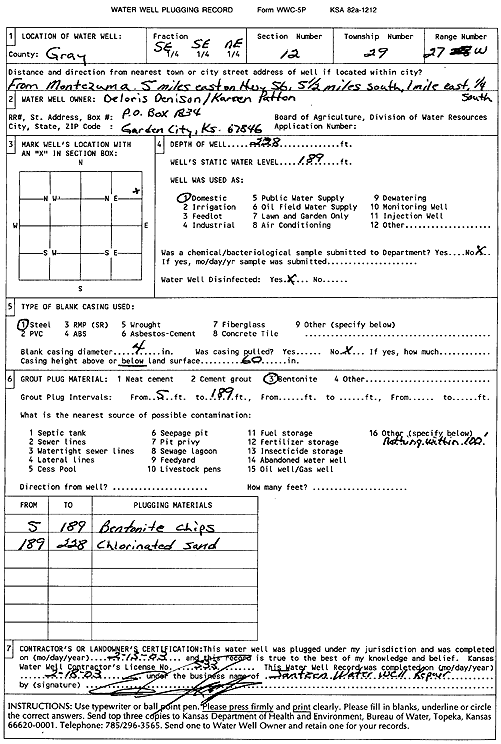 WATER WELL PLUGGING RECORD Form WWC-5P KSA 82a-1212
1 LOCATION OF WATER WELL: Fraction Section Number Township Number Range Number
County: Gray SE 1/4 SE 1/4 NE 1/4 12 29 27 W
Distance and direction from nearest town or city street address of well if located within city?
From Montezuma 5 miles east on Hwy 56, 5 1/2 miles south, 1 mile east, 1/4 South
2 WATER WELL OWNER: Deloris Denison/Kareen Patton
RR#, St. Address, Box #: P.O. Box 1234 Board of Agriculture, Division of Water Resources
City, State, ZIP Code : Garden City, Ks. 67846 Application Number:
3 MARK WELL'S LOCATION WITH AN "X" IN SECTION BOX:
N
NW NE
W E
SW SE
S
4 DEPTH OF WELL...228...ft.
WELL'S STATIC WATER LEVEL...189...ft.
WELL WAS USED AS:
1 Domestic 5 Public Water Supply 9 Dewatering
2 Irrigation 6 Oil Field Water Supply 10 Monitoring Well
3 Feedlot 7 Lawn and Garden Only 11 Injection Well
4 Industrial 8 Air Conditioning 12 Other...
Was a chemical/bacteriological sample submitted to Department? Yes....No X
If yes, mo/day/yr sample was submitted...
Water Well Disinfected: Yes X No......
5 TYPE OF BLANK CASING USED:
1 Steel 3 RMP (SR) 5 Wrought 7 Fiberglass 9 Other (specify below)
2 PVC 4 ABS 6 Asbestos-Cement 8 Concrete Tile
Blank casing diameter...4...in. Was casing pulled? Yes...... No X If yes, how much...
Casing height above or below land surface...60...in.
6 GROUT PLUG MATERIAL: 1 Neat cement 2 Cement grout 3 Bentonite 4 Other...
Grout Plug Intervals: From..5..ft. to..189..ft., From......ft. to ......ft., From......ft. to......ft.
What is the nearest source of possible contamination:
1 Septic tank 6 Seepage pit 11 Fuel storage 16 Other (specify below)
2 Sewer lines 7 Pit privy 12 Fertilizer storage Nothing within 100'
3 Watertight sewer lines 8 Sewage lagoon 13 Insecticide storage
4 Lateral lines 9 Feedyard 14 Abandoned water well
5 Cess Pool 10 Livestock pens 15 Oil well/Gas well
Direction from well? ... How many feet? ...
FROM TO PLUGGING MATERIALS
5 189 Bentonite chips
189 228 Chlorinated sand
7 CONTRACTOR'S OR LANDOWNER'S CERTIFICATION: This water well was plugged under my jurisdiction and was completed
on (mo/day/year)...2-13-03... and this record is true to the best of my knowledge and belief. Kansas
Water Well Contractor's License No... 533 This Water Well Record was completed on (mo/day/year)
2-18-03 under the business name of Santeen Water Well Repair
by (signature)
INSTRUCTIONS: Use typewriter or ball point pen. Please press firmly and print clearly. Please fill in blanks, underline or circle
the correct answers. Send top three copies to Kansas Department of Health and Environment, Bureau of Water, Topeka, Kansas
66620-0001. Telephone: 785/296-3565. Send one to Water Well Owner and retain one for your records.